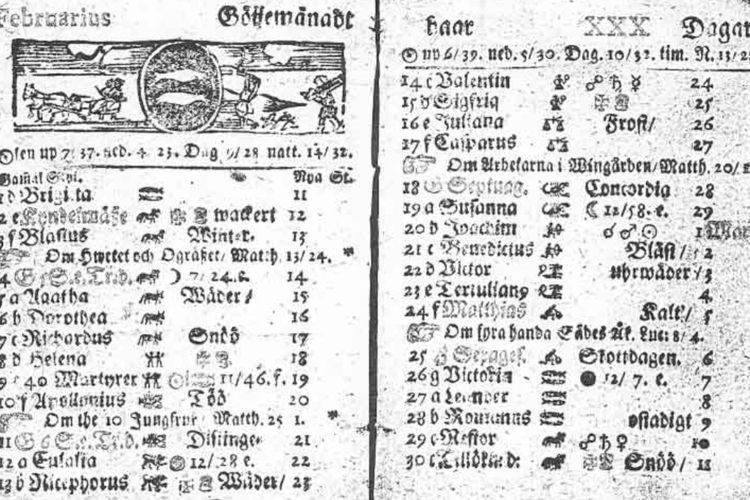 Februarius Göijemånadt
Solen up 7/37. ned. 4 23. Dag 9/28 natt. 14/32.
Gamal Styl. Nya St.
1 d Brigitta 11
2 e Kyndelmässe wackert 12
3 f Blasius Winter. 13
Om Hwetet och Ogräset/ Matth. 13/24.
4 G 5. S. e. Tr. d. 7/24. 14
5 a Agatha Wäder/ 15
6 b Dorothea 16
7 c Richardus Snöö 17
8 d Helena 18
9 e 40 Martyrer 11/46. f. 19
10 f Apollonius Töö 20
Om the 10 Jungfrur Matth. 25 1.
11 G 6 S. e. Tr. d. 21
12 a Eulalia 12/28 e. 22
13 b Nicephorus Wäder/ 23
haar XXX Dagar
☉ up 6/39. ned. 5/30. Dag. 10/32. tim. N. 13/2
14 c Valentin ☍ ♄ ☿ 24
15 d Sigfrid 25
16 e Juliana Frost/ 26
17 f Casparus 27
Om Arbetarna i Wingården/ Matth. 20/1
18 G Septuag. Concordia 28
19 a Susanna ☾ 12/58. e. 29
20 b Joachim ☌ ♂ ☉ 1 Mar
21 c Benedictus Bläst/ 2
22 d Victor uhrwäder/ 3
23 e Tertulianus 4
24 f Matthias Kalt/ 5
Om fyra handa Sädes Åk. Luc: 8/4.
25 G Sexages. Skottdagen. 6
26 g Victoria ● 12/7. e. 7
27 a Leander 8
28 b Romanus ostadigt 9
29 c Nestor ☍ ♄ ♀ 10
30 c Snöö/ 11